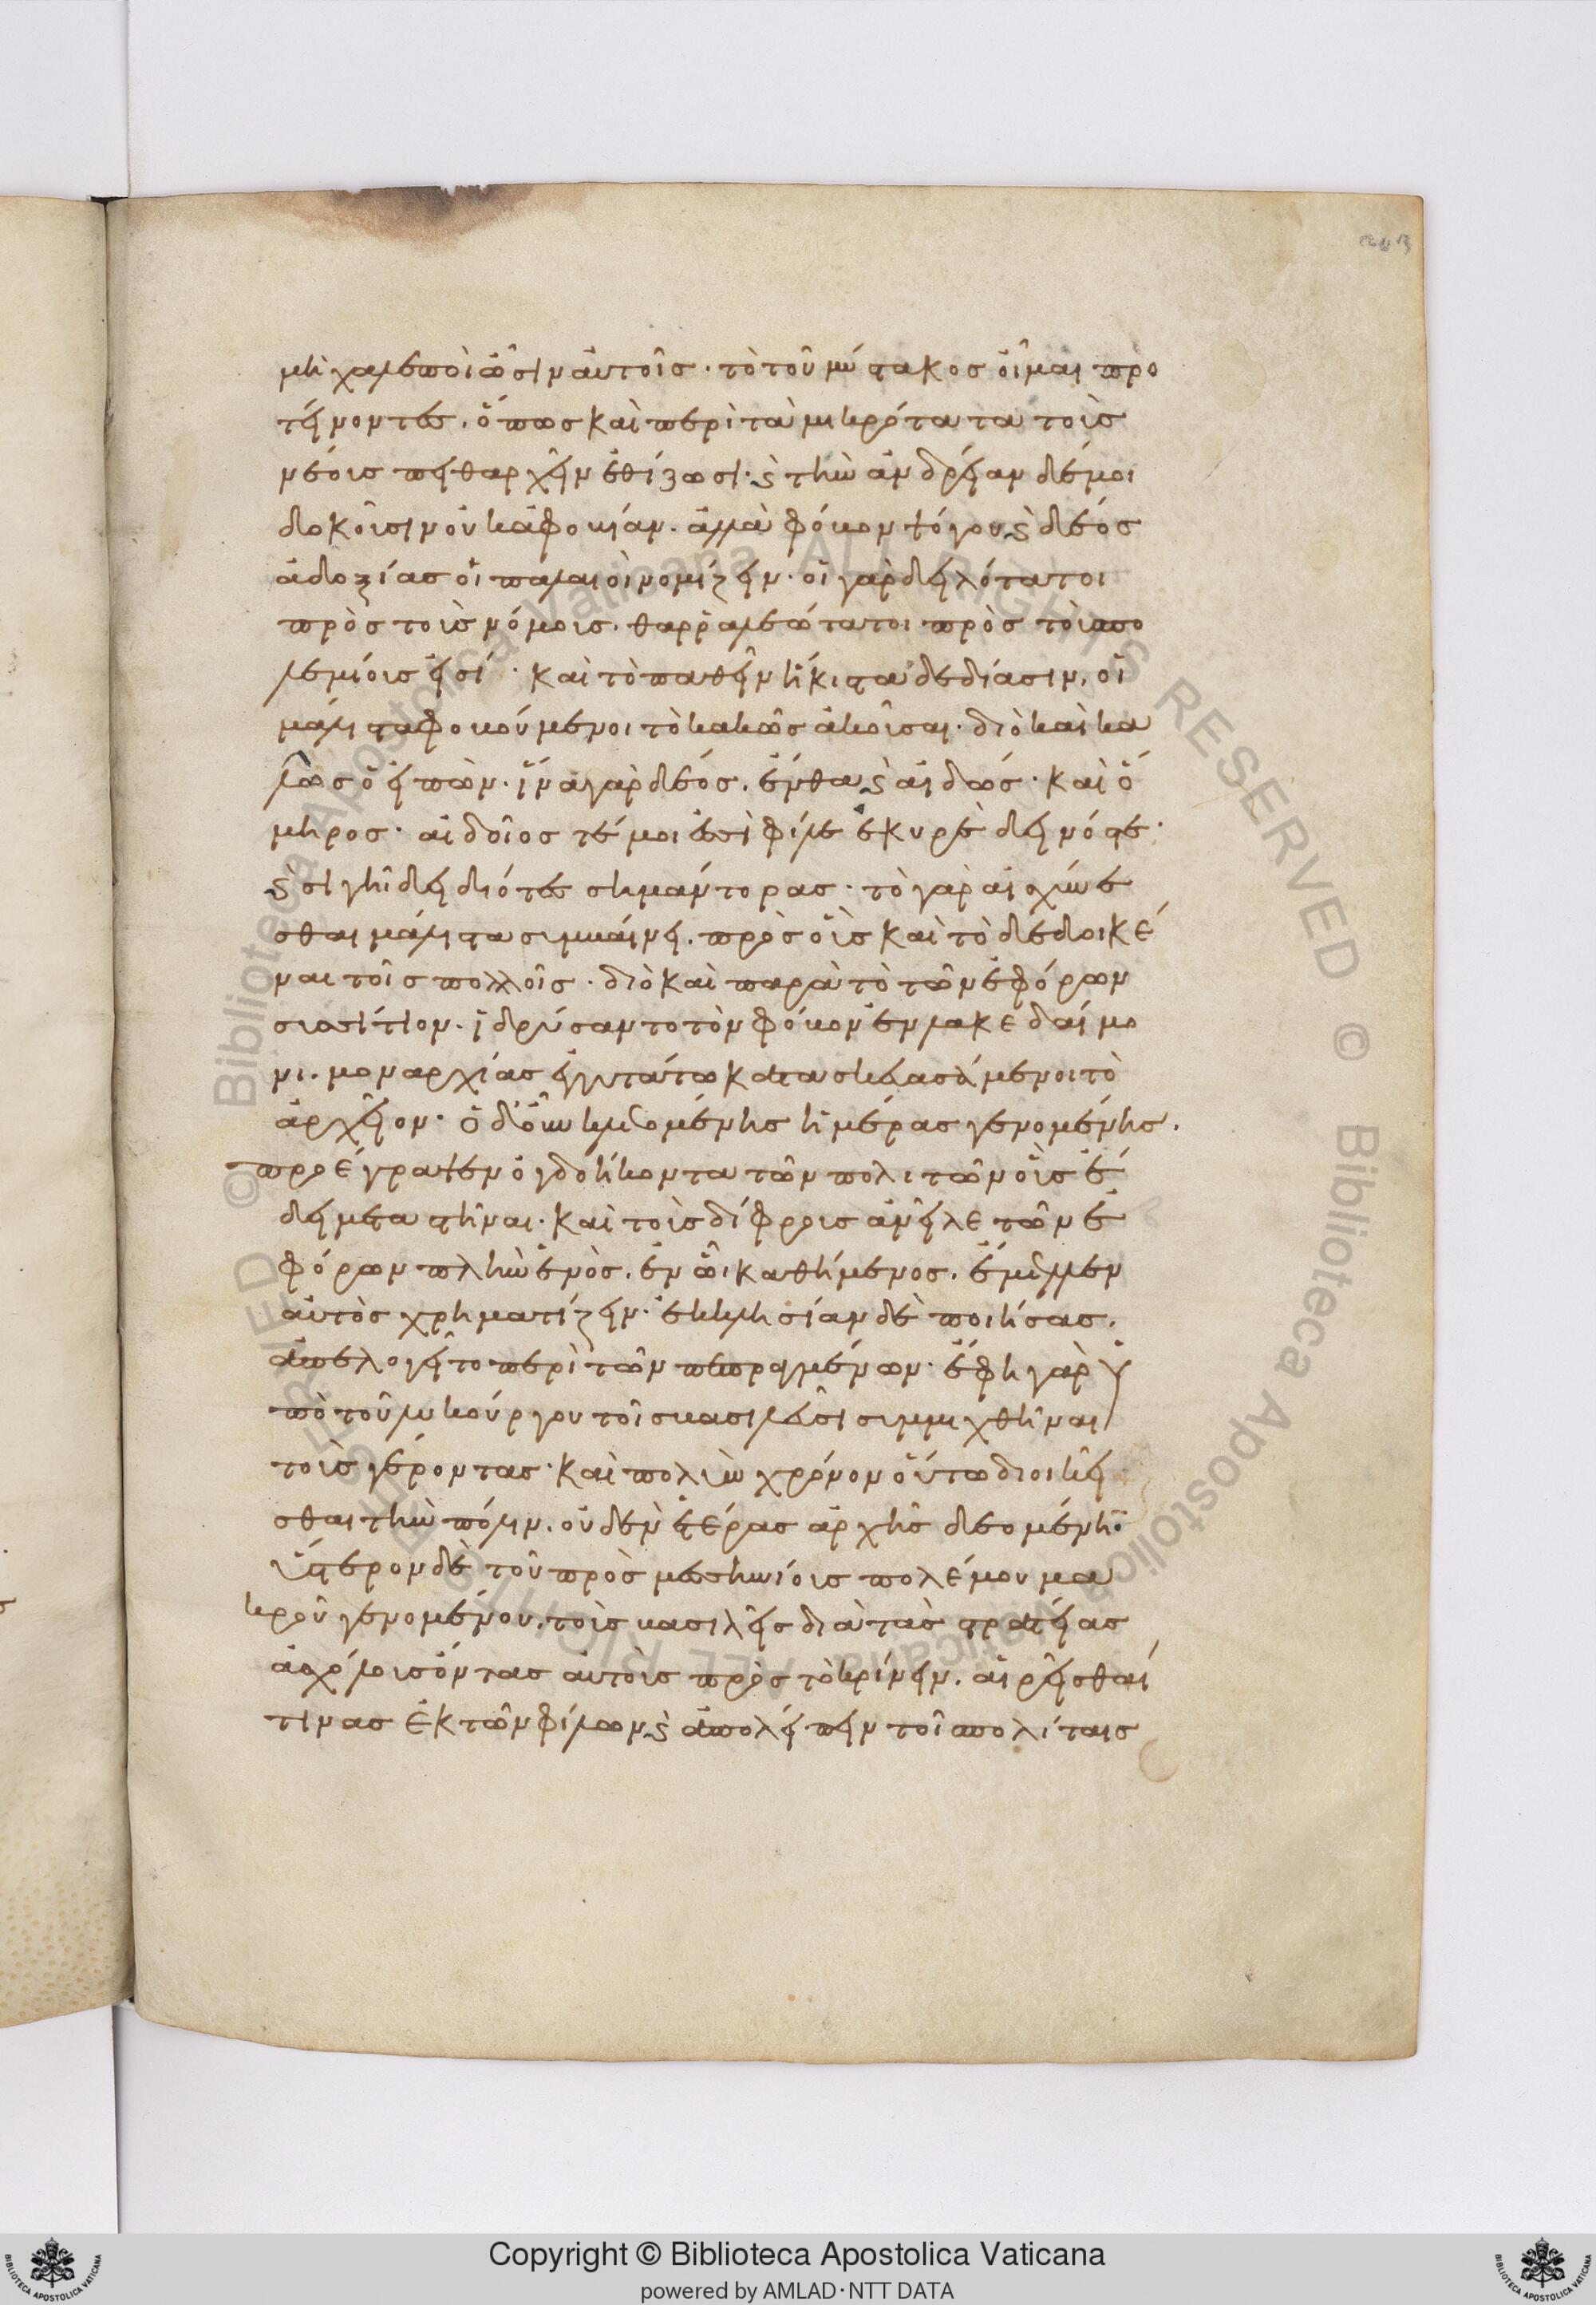 μὴ χαλεποὶ ὦσιν αὐτοῖς· τὸ τοῦ μύστακος οἶμαι προ
τείνοντες, ὅπως καὶ περὶ τὰ μικρότατα τοὺς
νέους πειθαρχεῖν ἐθίζωσι· ϗ τὴν ἀνδρείαν δέ μοι
δοκοῦσιν οὐκ ἀφοβίαν· ἀλλὰ φόβον ψόγου ϗ δέος
ἀδοξίας οἱ παλαιοὶ νομίζειν· οἱ γὰρ δειλότατοι
πρὸς τοὺς νόμους, θαρραλεώτατοι πρὸς τοὺς πο
λεμίους εἰσί· καὶ τὸ παθεῖν ἥκιστα δεδίασιν, οἱ
μάλιστα φοβούμενοι τὸ κακῶς ἀκοῦσαι· διὸ καὶ κα
λῶς ὁ εἰπὼν· ἵνα γὰρ δέος, ἔνθα ϗ αἰδώς· καὶ ὅ
μηρος· αἰδοῖος τέ μοι ἐσὶ φίλε ἑκυρὲ δεινός τε·
ϗ σιγῆ δειδιότες σημάντορας· τὸ γὰρ αἰσχύνε
σθαι μάλιστα συμβαίνει, πρὸς οὓς καὶ τὸ δεδοικέ
ναι τοῖς πολλοῖς· διὸ καὶ παρὰ τὸ τῶν ἐφόρων
συσίτιον, ἱδρύσαντο τὸν φόβον ἐν λακεδαίμο
νι, μοναρχίας ἐγγυτάτω κατασκευασάμενοι τὸ
ἀρχεῖον· ὁ δ' οὖν κλεομένης ἡμέρας γενομένης,
προέγραψεν ὀγδοήκοντα τῶν πολιτῶν οὓς ἔ
δει μεταστῆναι· καὶ τοὺς δίφρους ἀνεῖλε τῶν ἐ
φόρων πλὴν ἑνὸς, ἐν ὧι καθήμενος, ἔμελλεν
αὐτὸς χρηματίζειν· ἐκκλησίαν δὲ ποιήσας,
ἀπελογεῖτο περὶ τῶν πεπραγμένων· ἔφη γὰρ ὑ
πὸ τοῦ λυκούργου τοῖς βασιλεῦσι συμμιχθῆναι
τοὺς γέροντας· καὶ πολὺν χρόνον οὕτω διοικεῖ
σθαι τὴν πόλιν, οὐδὲν ἑτέρας ἀρχῆς δεομένην·
ὕστερον δὲ τοῦ πρὸς μεσηνίους πολέμου μα
κροῦ γενομένου, τοὺς βασιλεῖς διὰ τὰς στρατείας
ἀσχόλους ὄντας αὐτοὺς πρὸς τὸ κρίνειν, αἱρεῖσθαί
τινας ἐκ τῶν φίλων ϗ ἀπολείπειν τοῖ πολίταις
Copyright © Biblioteca Apostolica Vaticana
powered by AMLAD·NTT DATA